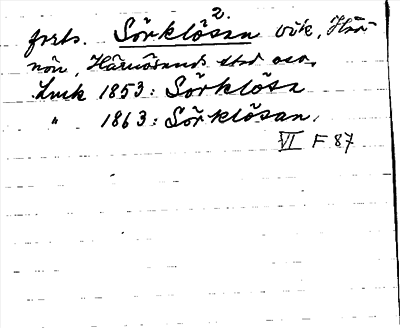 2.
forts. Sörklösan vik, Här-
nön, Härnösands stad oso.
Luck 1853: Sörklösa
" 1863: Sörklösan.
VI F 87